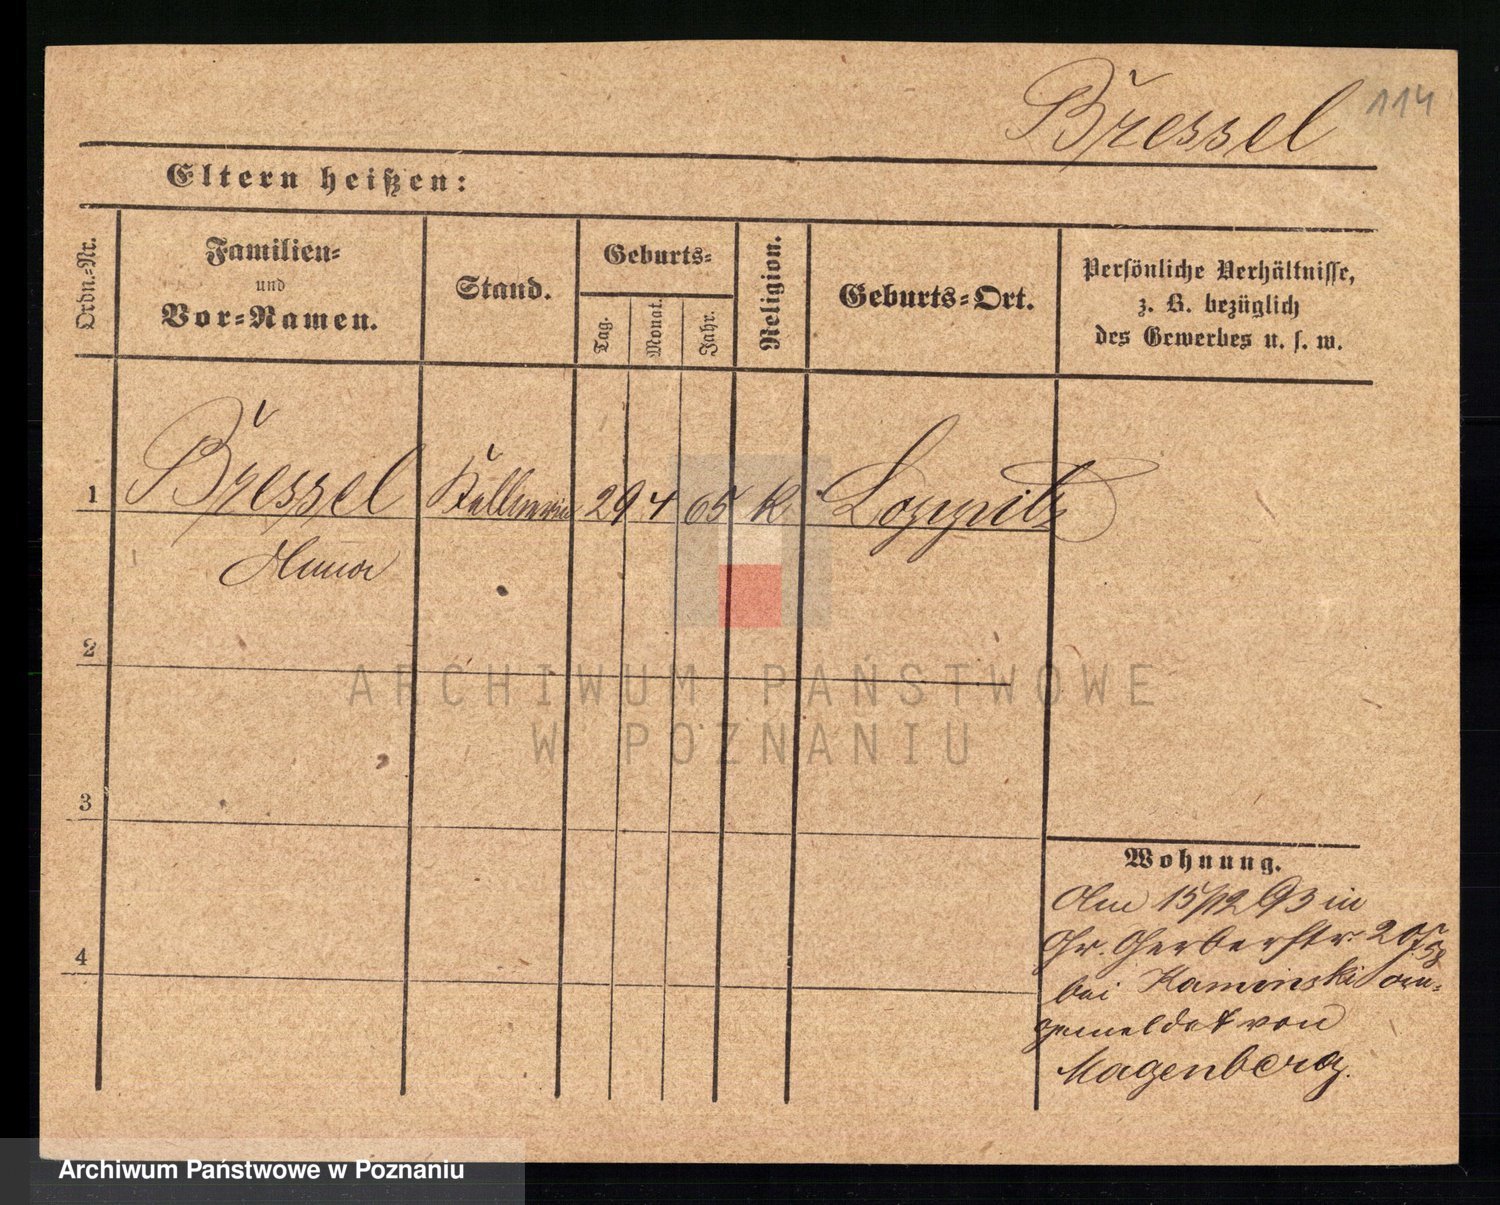 Bressel 114
Eltern heißen:
Ordn.-Nr.
Familien-
und
Vor-Namen.
Stand.
Geburts-
Tag.
Monat.
Jahr.
Religion.
Geburts-Ort.
Persönliche Verhältnisse,
z. B. bezüglich
des Gewerbes u. s. w.
1 Bressel Kellnerin 29 4 65 K
Anna
2
3
4
Wohnung.
Am 15/12 93 in
Gr. Gerberstr. 20
bei Kaminski an-
gemeldet von
Magenberg.
ARCHIWUM PAŃSTWOWE
W POZNANIU
Archiwum Państwowe w Poznaniu